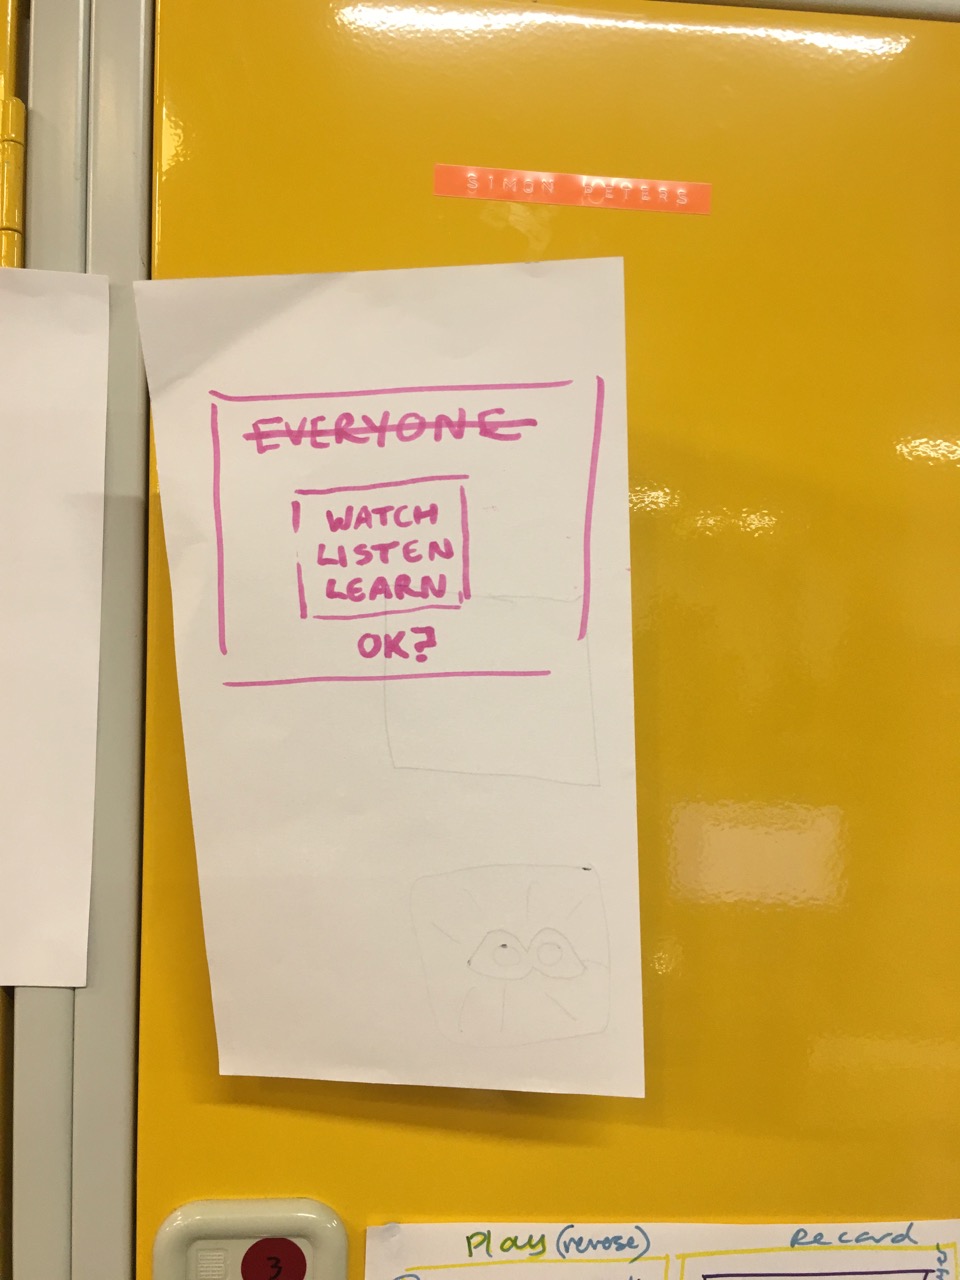 SIMON PETERS
EVERYONE
WATCH
LISTEN
LEARN
OK?
3
Play (revose)
Record